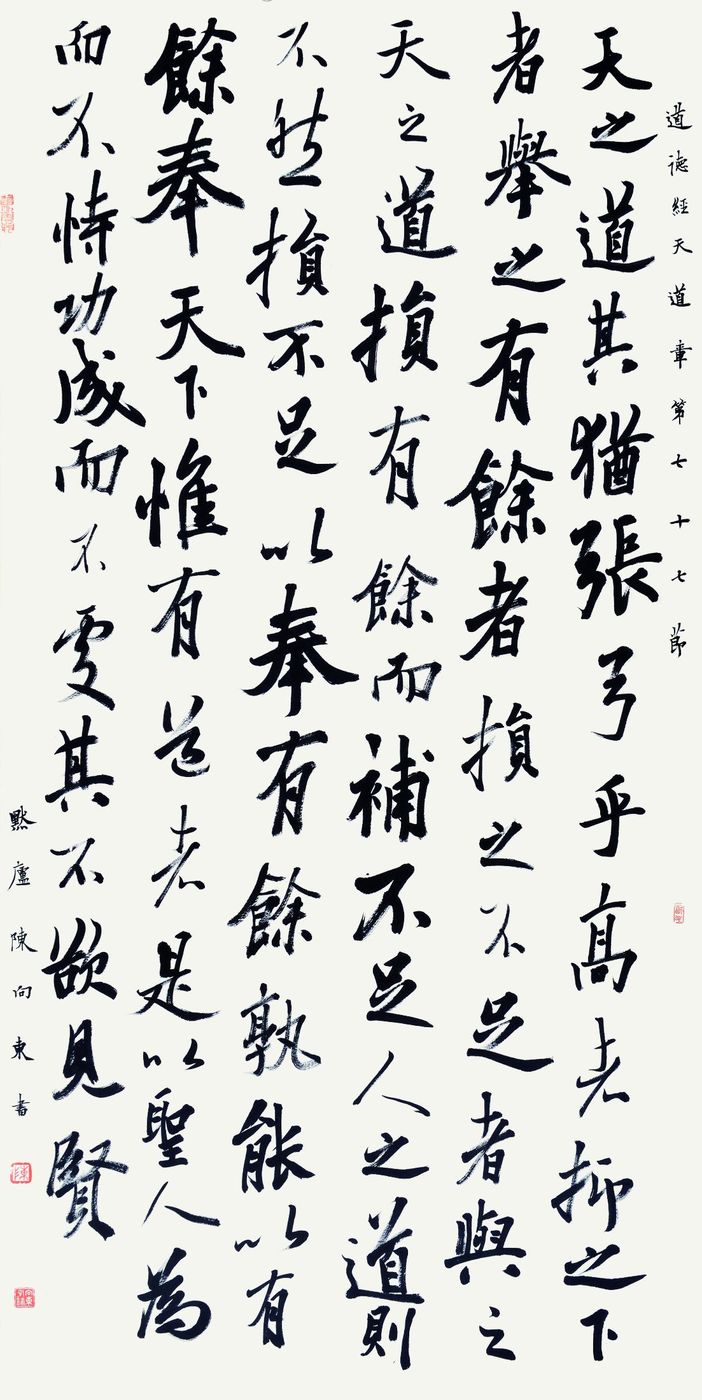 道德經天道章第七十七節
天之道其猶張弓乎高者抑之下
者舉之有餘者損之不足者與之
天之道損有餘而補不足人之道則
不然損不足以奉有餘孰能以有
餘奉天下惟有道者是以聖人為
而不恃功成而不處其不欲見賢
默廬陳向東書